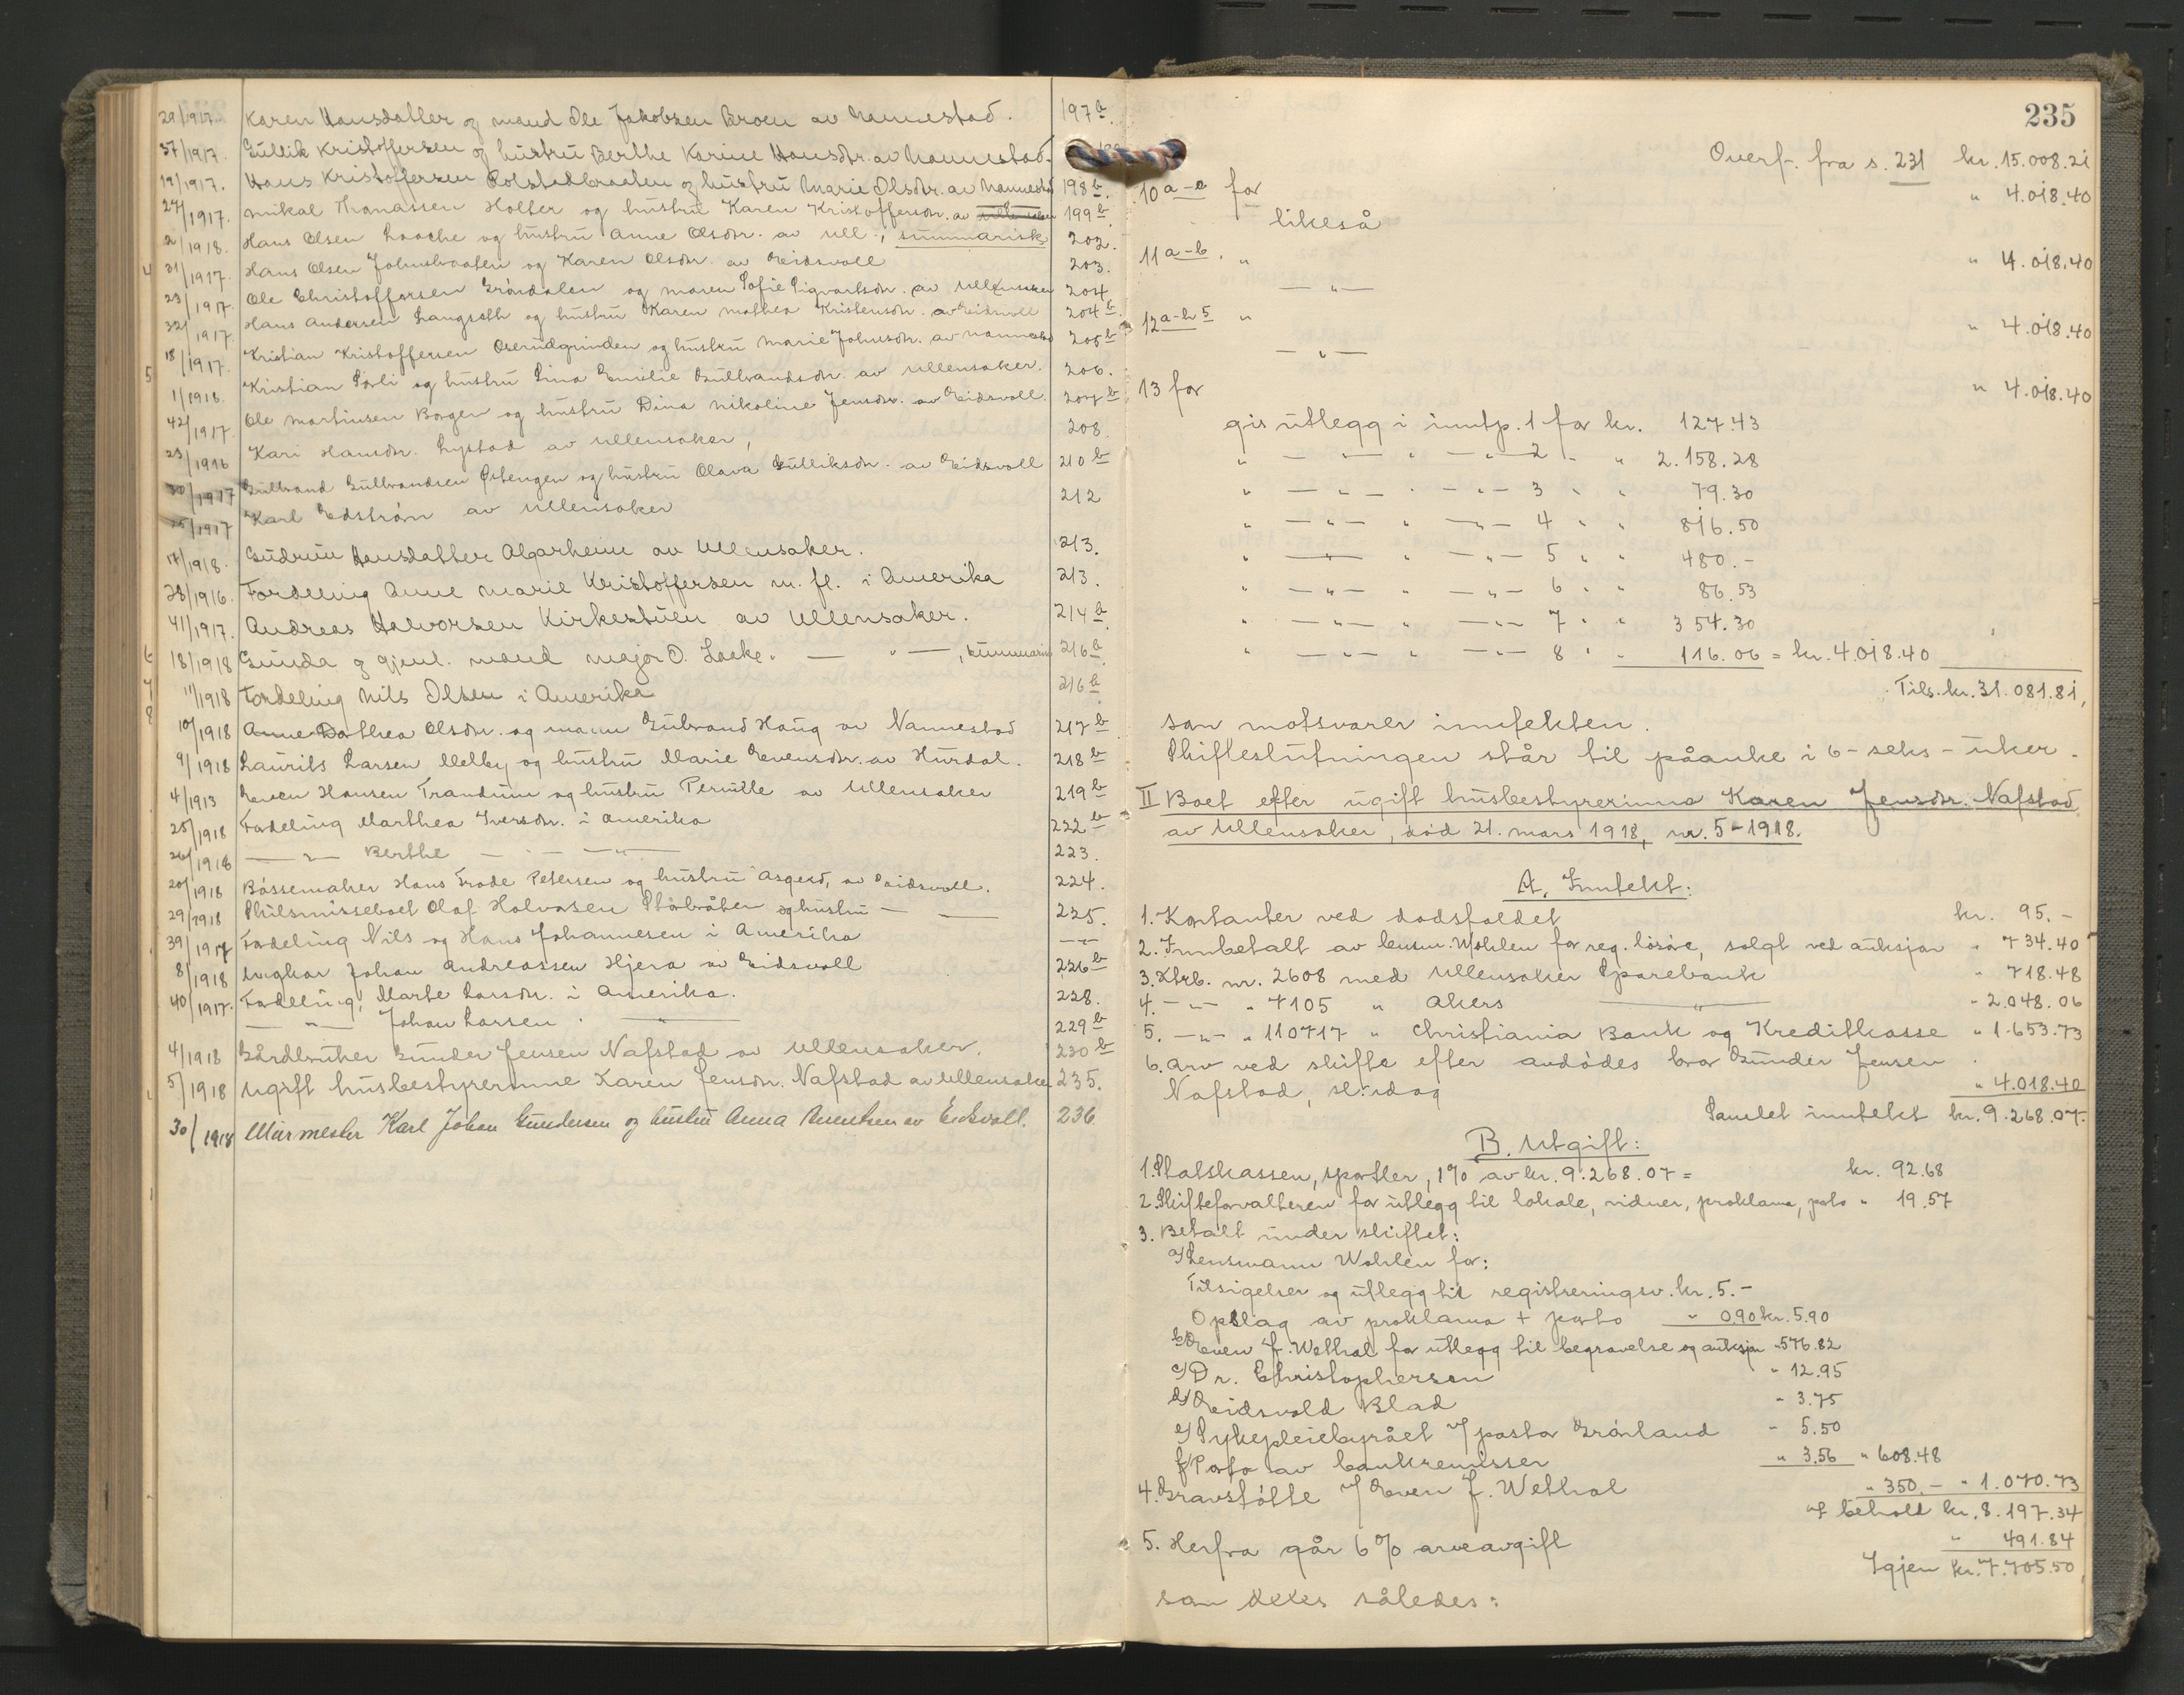 29/1917. Karen Hansdatter og mand Ole Jakobsen Broen av Nannestad. 197b.
37/1917. Gullik Kristoffersen og hustru Berthe Karine Hansdtr. av Nannestad.
19/1917. Hans Kristoffersen Rolstadbraaten og hustru Marie Olsdtr. av Nannestad 198b.
27/1917. Mikal Thomassen Holter og hustru Karen Kristoffersdtr. av 199b.
2/1918. Hans Olsen Laache og hustru Anne Olsdtr. av Ull., summarisk 202.
4 31/1917. Hans Olsen Johnsbraaten og Karen Olsdtr. av Eidsvoll 203.
23/1917. Ole Christoffersen Grøndalen og Maren Sofie Sigvartsdtr. av Ullensaker 204
32/1917. Hans Andersen Langseth og hustru Karen Mathea Kristensdtr. av Eidsvoll 204b.
18/1917. Kristian Kristoffersen Oserudgrinden og hustru Marie Johnsdtr. av Nannestad 205b
5 1/1918. Kristian Sørli og hustru Lina Emilie Gulbrandsdtr. av Ullensaker. 206.
42/1917. Ole Martinsen Borgen og hustru Dina Nikoline Jensdtr. av Eidsvoll. 207b
23/1916 Kari Hansdtr. Lystad av Ullensaker, 208.
30/1917 Gulbrand Gulbrandsen Østengen og hustru Olava Gulliksdtr. av Eidsvoll 210b
25/1917 Karl Edstrøm av Ullensaker 212
17/1918. Gudrun Hansdatter Algarheim av Ullensaker. 213.
28/1916. Fordeling Anne Marie Kristoffersen m. fl. i Amerika 213.
41/1917. Andreas Halvorsen Kirkestuen av Ullensaker. 214b.
6 18/1918 Gunda og gjenl. mand major O. Laake. — " —, summarisk 216a.
7 11/1918 Fordeling Nils Olsen i Amerika 216b
8 10/1918 Anne Dorthea Olsdtr. og mann Gulbrand Haug av Nannestad 217b.
9/1918 Laurits Larsen Melby og hustru Marie Evensdtr. av Hurdal. 218b
4/1913 Even Hansen Trandum og hustru Pernille av Ullensaker 219b
25/1918 Fordeling Marthea Iversdtr. i Amerika 222b
26/1918 — " — Berthe — " — — " — 223.
20/1918 Bøssemaker Hans Frode Petersen og hustru Asgerd, av Eidsvoll. 224.
29/1918 Skilsmisseboet Olaf Halvorsen Storbråten og hustru — — 225.
39/1917 Fordeling Nils og Hans Johannesen i Amerika — " —
8/1918 Ungkar Johan Andreassen Hjera av Eidsvoll 226b
40/1917. Fordeling Marte Larsdtr. i Amerika. 228.
— " — Johan Larsen. — " — 229b
4/1918 Gårdbruker Gunder Jensen Nafstad av Ullensaker. 230b
5/1918 Ugift husbestyrerinne Karen Jensdtr. Nafstad av Ullensaker 235.
30/1918 Murmester Karl Johan Gundersen og hustru Anna Arentsen av Eidsvoll. 236
235
Overf. fra s. 231 kr. 15.008.21
10 a-e for " 4.018.40
likeså
11 a-b. " " 4.018.40
— " —
12 a-b 5 " " 4.018.40
— " —
13 for " 4.018.40
gis utlegg i inntp. 1 for kr. 127.43
" — " — " — " — 2 " " 2.158.28
" — " — " — " — 3 " " 79.30
" — " — " — " — 4 " " 816.50
" — " — " — " — 5 " " 480.-
" — " — " — " — 6 " " 86.53
" — " — " — " — 7 " " 354.30
" — " — " — " — 8 " " 116.06 = kr. 4.018.40
Tils. kr. 31.081.81,
som motsvarer inntekten.
Skifteslutningen står til påanke i 6 - seks - uker.
II Boet efter ugift husbestyrerinne Karen Jensdr. Nafstad
av Ullensaker, død 21. mars 1918, nr. 5-1918.
A. Inntekt:
1. Kontanter ved dødsfaldet kr. 95.-
2. Innbetalt av lensm. Wohlen for reg. løsøre, solgt ved auksjon " 734.40
3. Ktrb. nr. 2608 med Ullensaker Sparebank " 718.48
4. — " — " 7105 " Akers — " — " 2.048.06
5. — " — " 110717 " Christiania Bank og Kreditkasse " 1.653.73
6. Arv ved skifte efter avdødes bror Gunder Jensen
Nafstad, sl. idag " 4.018.40
Samlet inntekt kr. 9.268.07.
B. Utgift:
1. Statskassen, sportler, 1% av kr. 9.268.07 = kr. 92.68
2. Skifteforvalteren for utlegg til lokale, vidner, proklama, porto " 19.57
3. Betalt under skiftet:
a/ Lensmann Wohlen for:
Tilsigelser og utlegg til registreringsv. kr. 5.-
Opslag av proklama + porto " 0.90 kr. 5.90
b/ Even J. Wethal for utlegg til begravelse og auksjon " 576.82
c/ Dr. Christophersen " 12.95
d/ Eidsvold Blad " 3.75
e/ Sykepleiebyrået v/ pastor Grønland " 5.50
f/ Porto av bankremisser " 3.56 " 608.48
4. Gravstøtte v/ Even J. Wethal " 350.- " 1.070.73
I behold kr. 8.197.34
5. Herfra går 6% arveavgift " 491.84
Igjen kr. 7.705.50,
som deles således: